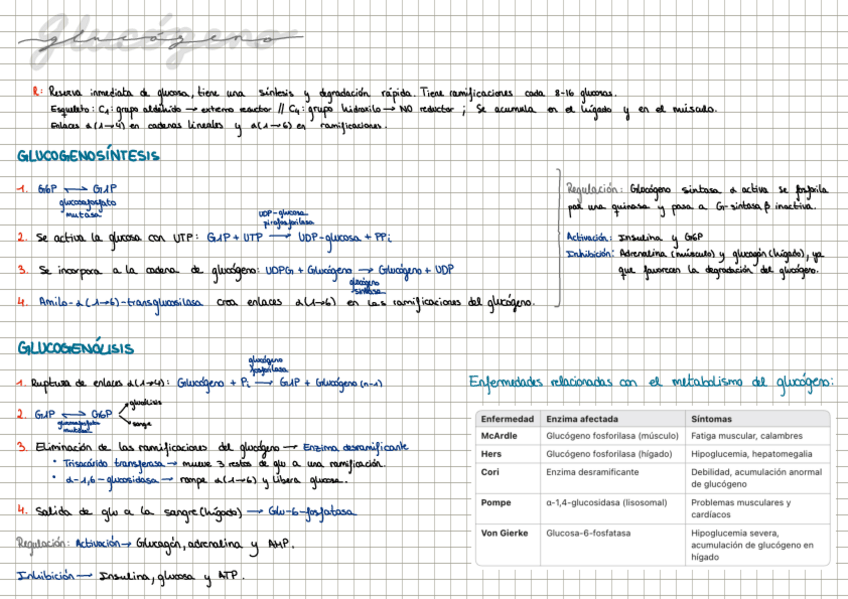 Glucógeno
R: Reserva inmediata de glucosa, tiene una síntesis y degradación rápida. Tiene ramificaciones cada 8-16 glucosas.
Esqueleto: C1: grupo aldehído → extremo reductor // C4: grupo hidroxilo → NO reductor ; Se acumula en el hígado y en el músculo.
Enlaces α(1→4) en cadenas lineales y α(1→6) en ramificaciones.
GLUCOGENOSÍNTESIS
1. G6P ⟷ G1P
glucosafosfato
mutasa
UDP-glucosa
pirofosforilasa
2. Se activa la glucosa con UTP: G1P + UTP → UDP-glucosa + PPi
3. Se incorpora a la cadena de glucógeno: UDPG + Glucógeno → Glucógeno + UDP
glucógeno
sintasa
4. Amilo-α(1→6)-transglucosilasa crea enlaces α(1→6) en las ramificaciones del glucógeno.
Regulación: Glucógeno sintasa α activa se fosforila
por una quinasa y pasa a G-sintasa β inactiva.
Activación: Insulina y G6P
Inhibición: Adrenalina (músculo) y glucagón (hígado), ya
que favorecen la degradación del glucógeno.
GLUCOGENÓLISIS
glucógeno
fosforilasa
1. Ruptura de enlaces α(1→4): Glucógeno + Pi → G1P + Glucógeno (n-1)
2. G1P ⟷ G6P
glucosafosfato
mutasa
glucólisis
sangre
3. Eliminación de las ramificaciones del glucógeno → Enzima desramificante
• Trisacárido transferasa → mueve 3 restos de glu a una ramificación.
• α-1,6-glucosidasa → rompe α(1→6) y libera glucosa.
4. Salida de glu a la sangre (hígado) → Glu-6-fosfatasa
Regulación: Activación → Glucagón, adrenalina y AMP.
Inhibición → Insulina, glucosa y ATP.
Enfermedades relacionadas con el metabolismo del glucógeno:
Enfermedad Enzima afectada Síntomas
McArdle Glucógeno fosforilasa (músculo) Fatiga muscular, calambres
Hers Glucógeno fosforilasa (hígado) Hipoglucemia, hepatomegalia
Cori Enzima desramificante Debilidad, acumulación anormal
de glucógeno
Pompe α-1,4-glucosidasa (lisosomal) Problemas musculares y
cardíacos
Von Gierke Glucosa-6-fosfatasa Hipoglucemia severa,
acumulación de glucógeno en
hígado